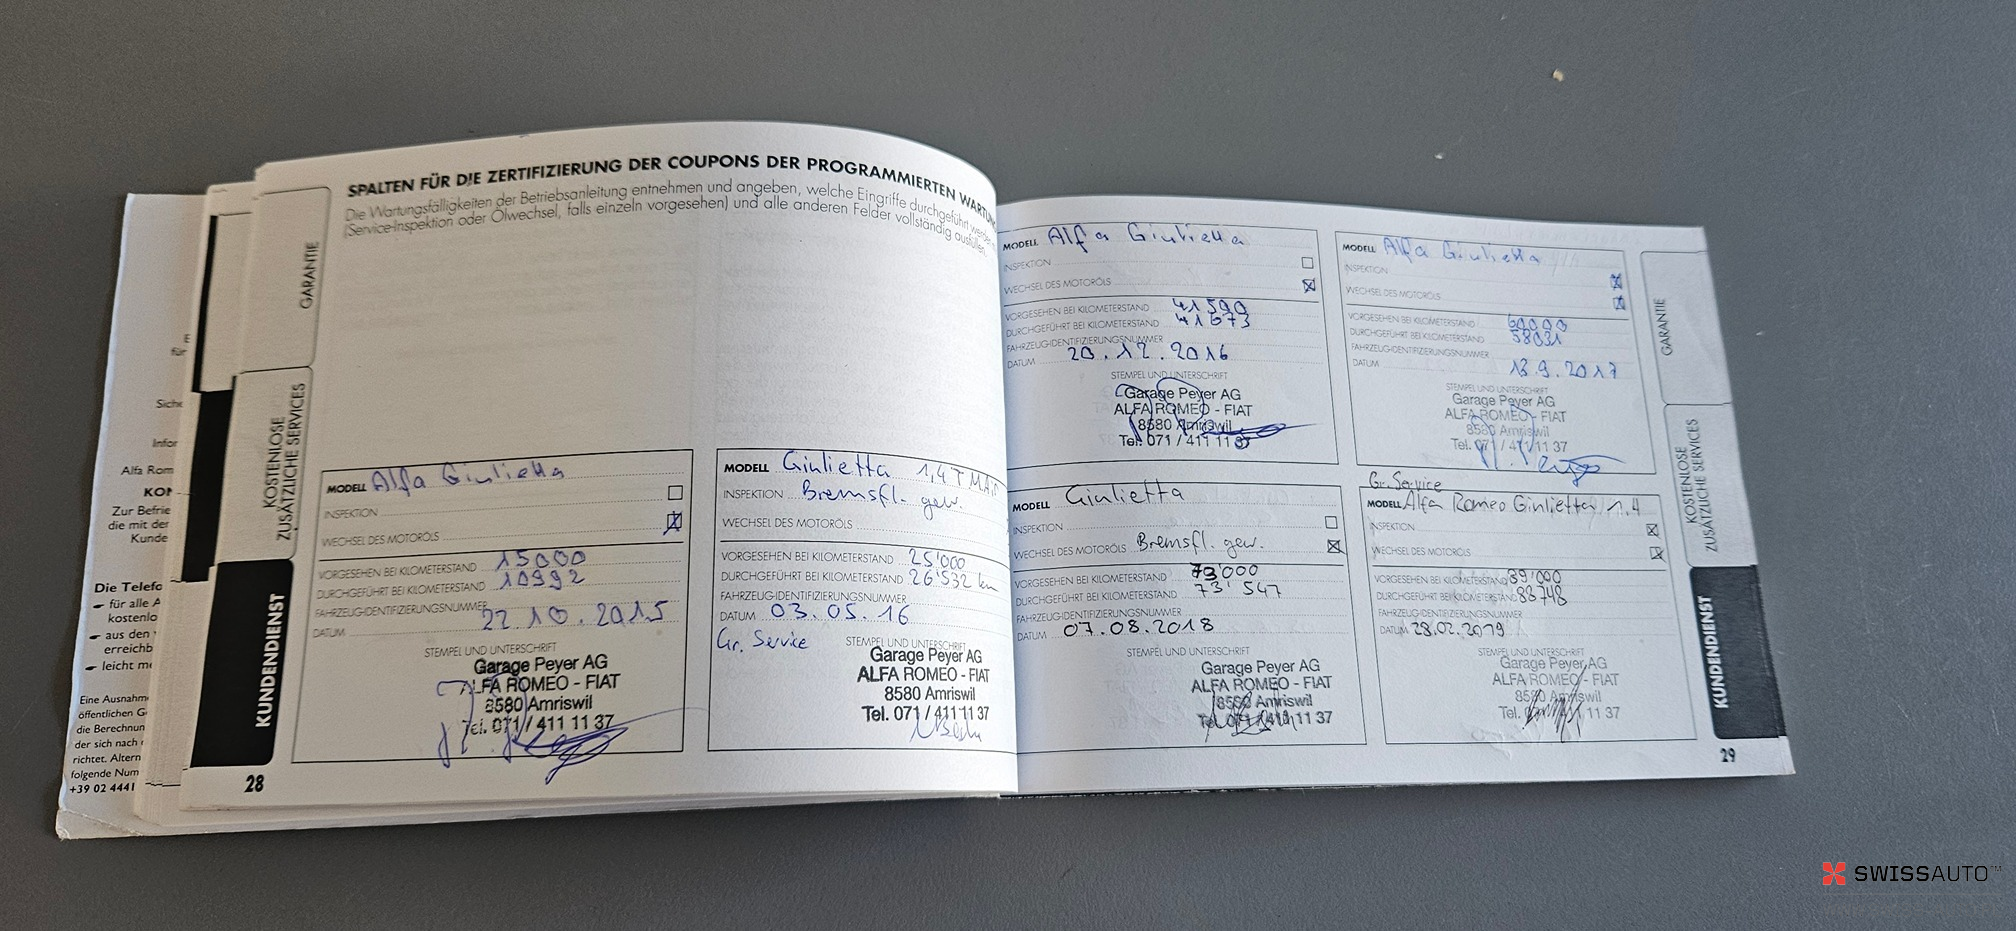 SPALTEN FÜR DIE ZERTIFIZIERUNG DER COUPONS DER PROGRAMMIERTEN WARTUN
Die Wartungsfälligkeiten der Betriebsanleitung entnehmen und angeben, welche Eingriffe durchgeführt werden
(Service-Inspektion oder Ölwechsel, falls einzeln vorgesehen) und alle anderen Felder vollständig ausfüllen.
GARANTIE
KOSTENLOSE
ZUSÄTZLICHE SERVICES
KUNDENDIENST
E
für
Siche
Infor
Alfa Rom
KON
Zur Befrie
die mit der
Kunde
Die Telefo
für alle A
kostenlo
aus den
erreichb
leicht me
Eine Ausnahm
öffentlichen G
die Berechnun
der sich nach
richtet. Altern
folgende Num
+39 02 4441
MODELL Alfa Giulietta
INSPEKTION
WECHSEL DES MOTORÖLS
VORGESEHEN BEI KILOMETERSTAND 15000
DURCHGEFÜHRT BEI KILOMETERSTAND 10992
FAHRZEUG-IDENTIFIZIERUNGSNUMMER
DATUM 22.10.2015
STEMPEL UND UNTERSCHRIFT
Garage Peyer AG
ALFA ROMEO - FIAT
8580 Amriswil
Tel. 071 / 411 11 37
28
MODELL Giulietta 1,4 T MAir
INSPEKTION Bremsfl. gew.
WECHSEL DES MOTORÖLS
VORGESEHEN BEI KILOMETERSTAND 25'000
DURCHGEFÜHRT BEI KILOMETERSTAND 26'532 km
FAHRZEUG-IDENTIFIZIERUNGSNUMMER
DATUM 03.05.16
Gr. Service
STEMPEL UND UNTERSCHRIFT
Garage Peyer AG
ALFA ROMEO - FIAT
8580 Amriswil
Tel. 071 / 411 11 37
MODELL Alfa Giulietta
INSPEKTION
WECHSEL DES MOTORÖLS
VORGESEHEN BEI KILOMETERSTAND 41500
DURCHGEFÜHRT BEI KILOMETERSTAND 41673
FAHRZEUG-IDENTIFIZIERUNGSNUMMER
DATUM 20.12.2016
STEMPEL UND UNTERSCHRIFT
Garage Peyer AG
ALFA ROMEO - FIAT
8580 Amriswil
Tel. 071 / 411 11 37
MODELL Alfa Giulietta
INSPEKTION
WECHSEL DES MOTORÖLS
VORGESEHEN BEI KILOMETERSTAND 60000
DURCHGEFÜHRT BEI KILOMETERSTAND 58031
FAHRZEUG-IDENTIFIZIERUNGSNUMMER
DATUM 13.9.2017
STEMPEL UND UNTERSCHRIFT
Garage Peyer AG
ALFA ROMEO - FIAT
8580 Amriswil
Tel. 071 / 411 11 37
MODELL Giulietta
INSPEKTION
WECHSEL DES MOTORÖLS Bremsfl. gew.
VORGESEHEN BEI KILOMETERSTAND 73'000
DURCHGEFÜHRT BEI KILOMETERSTAND 73'547
FAHRZEUG-IDENTIFIZIERUNGSNUMMER
DATUM 07.08.2018
STEMPEL UND UNTERSCHRIFT
Garage Peyer AG
ALFA ROMEO - FIAT
8580 Amriswil
Tel. 071 / 411 11 37
Gr. Service
MODELL Alfa Romeo Giulietta 1.4
INSPEKTION
WECHSEL DES MOTORÖLS
VORGESEHEN BEI KILOMETERSTAND 89'000
DURCHGEFÜHRT BEI KILOMETERSTAND 88748
FAHRZEUG-IDENTIFIZIERUNGSNUMMER
DATUM 28.02.2019
STEMPEL UND UNTERSCHRIFT
Garage Peyer AG
ALFA ROMEO - FIAT
8580 Amriswil
Tel. 071 / 411 11 37
GARANTIE
KOSTENLOSE
ZUSÄTZLICHE SERVICES
KUNDENDIENST
29
SWISSAUTO